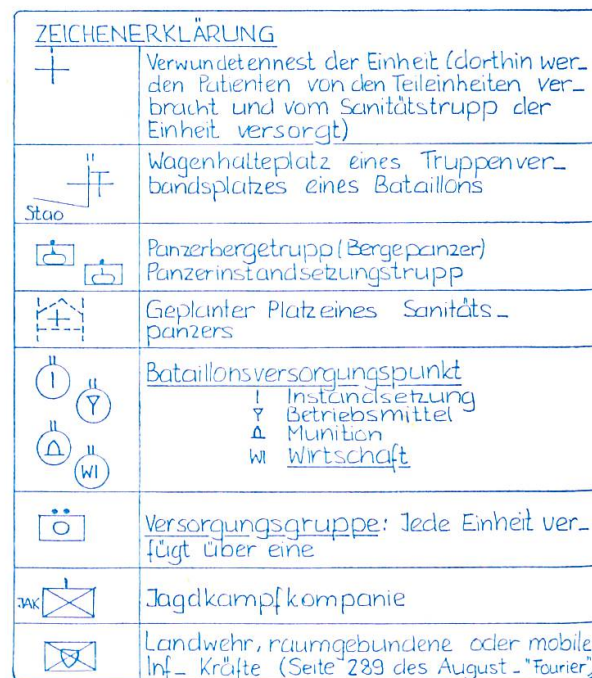 ZEICHENERKLÄRUNG
Verwundetennest der Einheit (dorthin wer_
den Patienten von den Teileinheiten ver_
bracht und vom Sanitätstrupp der
Einheit versorgt)
Wagenhalteplatz eines Truppenver_
bandsplatzes eines Bataillons
Stao
Panzerbergetrupp (Bergepanzer)
Panzerinstandsetzungstrupp
Geplanter Platz eines Sanitäts_
panzers
Bataillonsversorgungspunkt
I Instandsetzung
Y Betriebsmittel
Munition
WI Wirtschaft
I
Y
WI
Versorgungsgruppe: Jede Einheit ver_
fügt über eine
JAK
Jagdkampfkompanie
Landwehr, raumgebundene oder mobile
Inf_ Kräfte (Seite 289 des August_"Fourier"